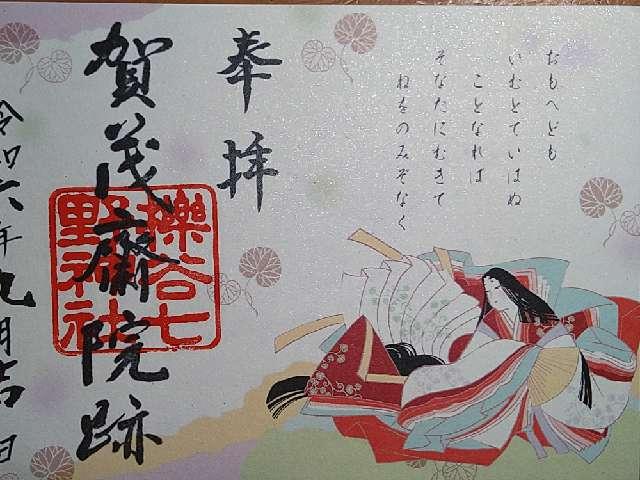 おもへども
いむとていはぬ
ことなれば
そなたにむきて
ねをのみぞなく
奉拝
賀茂斎院跡
櫟谷七野神社
令和六年九月吉日